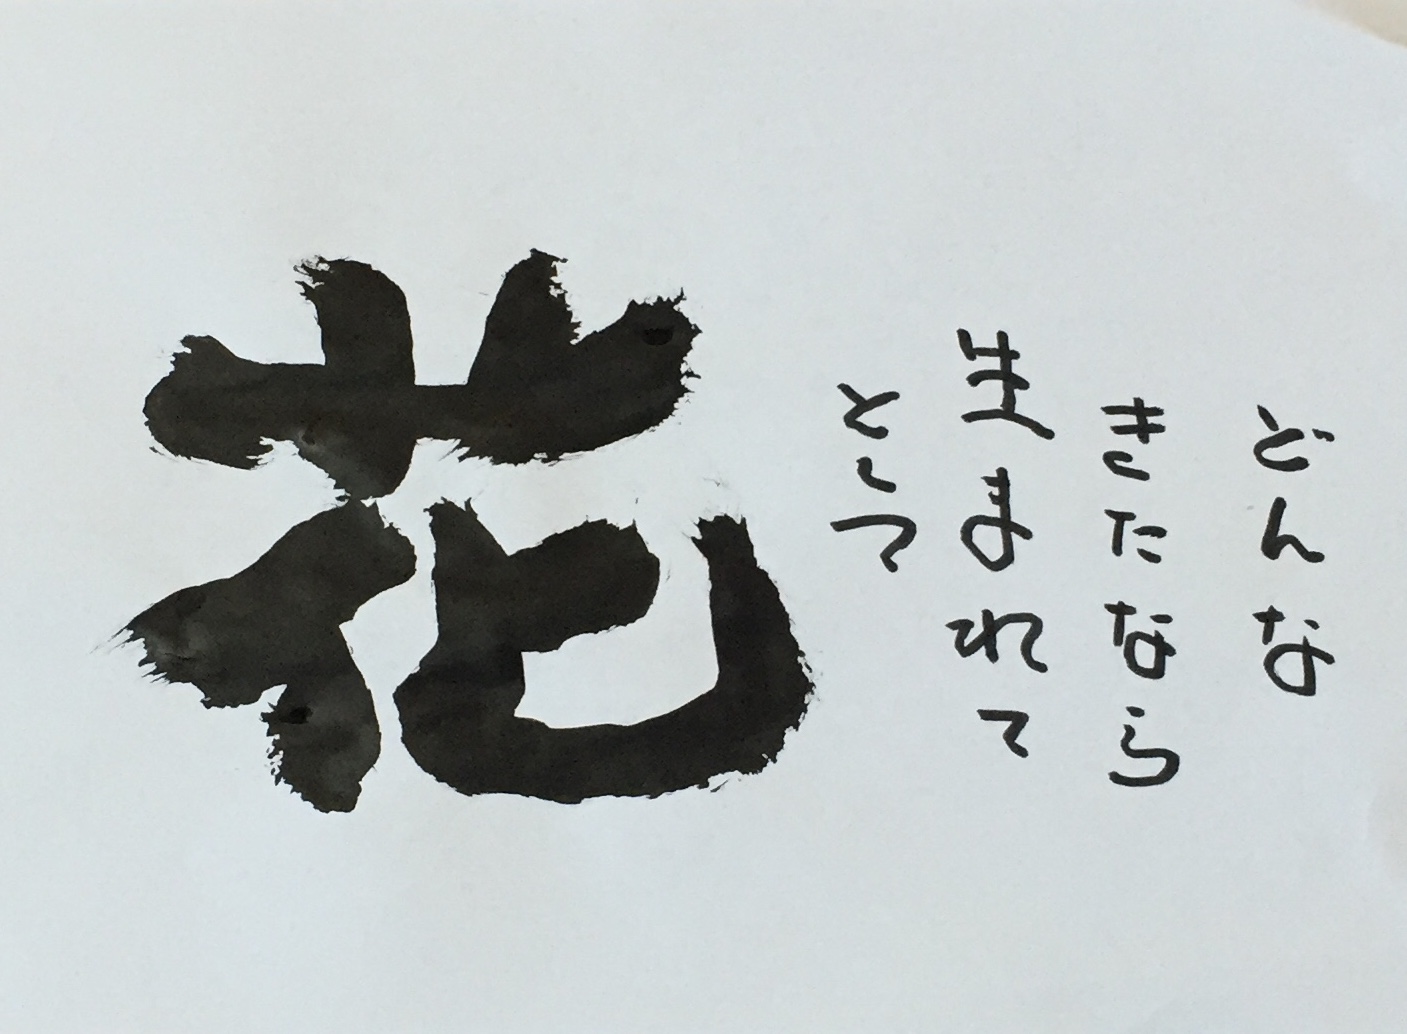 どんな
きたなら
生まれて
として
花